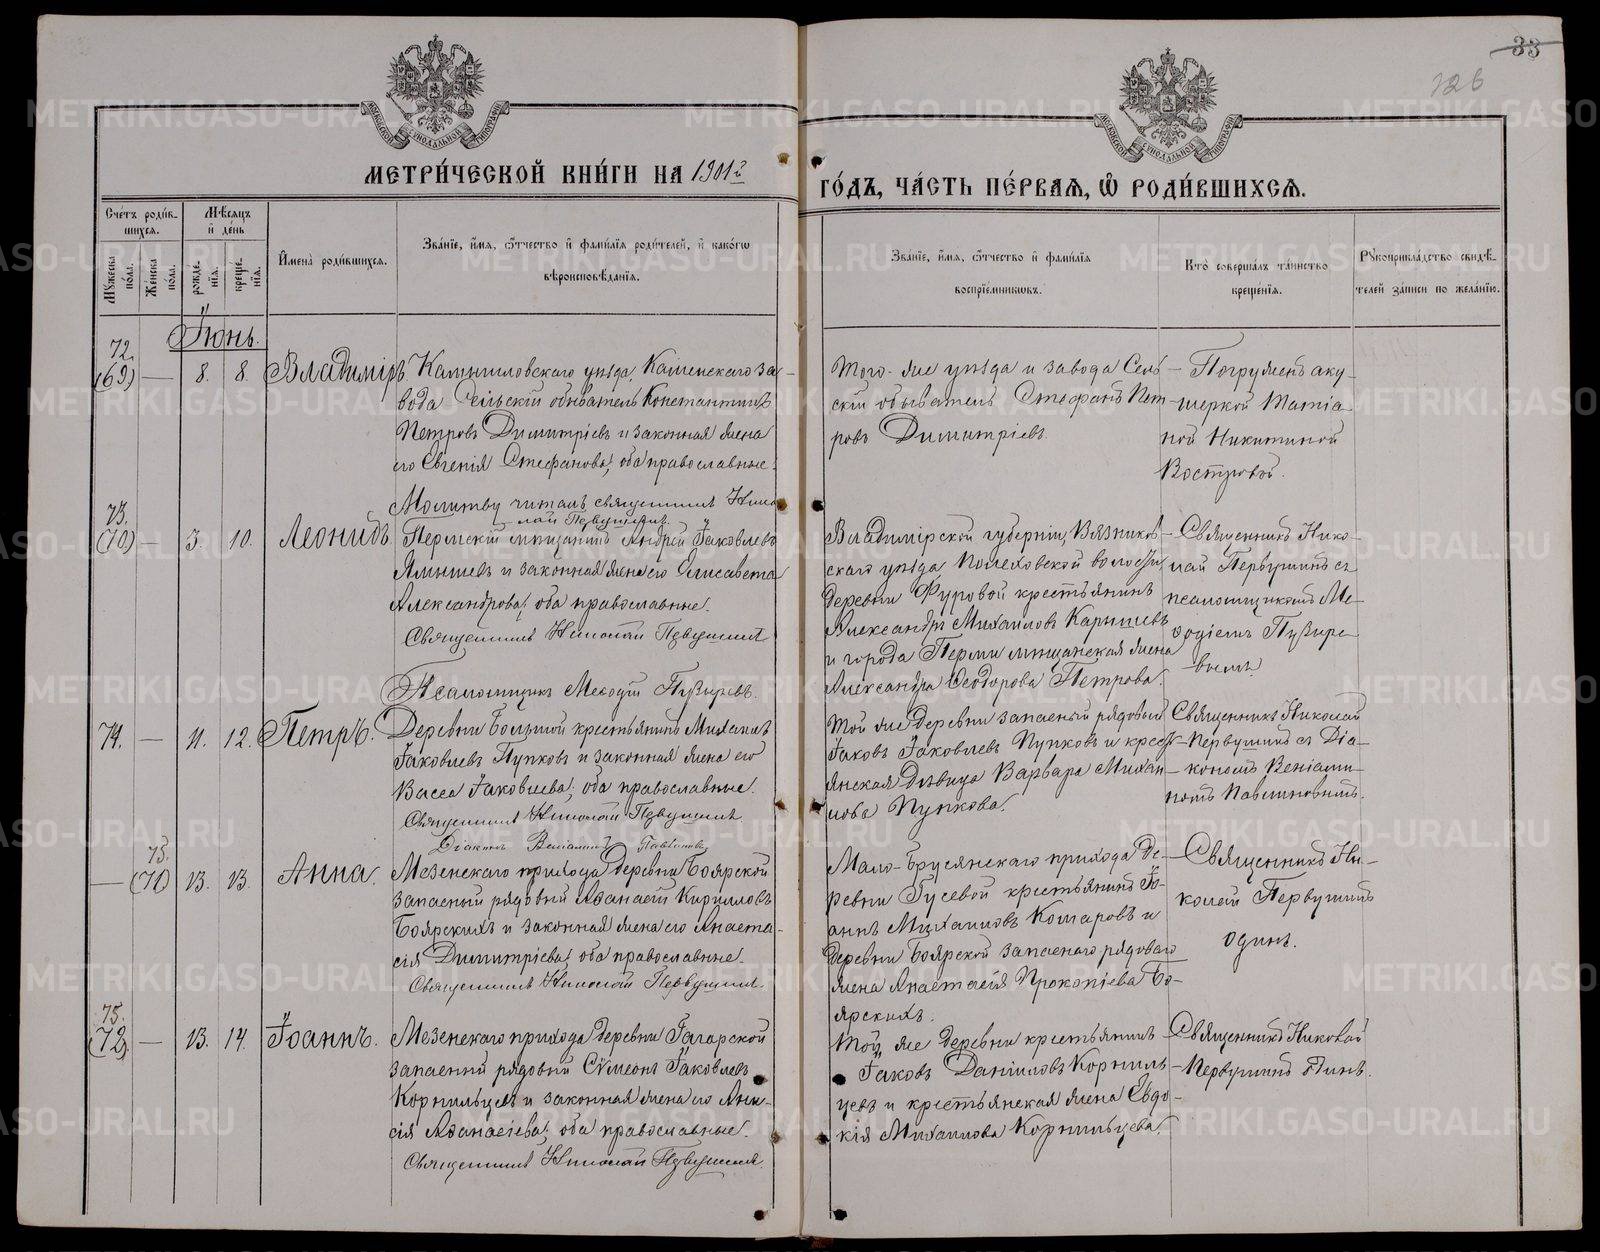 33
126
МЕТРИ́ЧЕСКОЙ КНИ́ГИ НА 1901 г.
ГО́ДЪ, ЧА́СТЬ ПЕ́РВАѦ, Ѽ РОДИ́ВШИХСѦ.
Сче́тъ роди́в-
шихсѧ.
Мꙋжеска по́ла.
Же́нска по́ла.
Мѣ́сѧцъ и де́нь
рожде́-
нїѧ.
креще́-
нїѧ.
Имена̀ роди́вшихсѧ.
Зва́нїе, и́мѧ, ѻ́тчество и фами́лїѧ роди́телей, и како́гѡ
вѣроисповѣ́данїѧ.
Зва́нїе, и́мѧ, ѻ́тчество и фами́лїѧ
воспрїе́мникѡвъ.
Кто̀ соверша́лъ та́инство
креще́нїѧ.
Рꙋкоприкла́дство свидѣ́-
телей за́писи по жела́нїю.
Іюнь.
72.
(69)
—
8.
8.
Владиміръ
Камышловскаго уѣзда, Каменскаго за-
вода сельскій обыватель Константинъ
Петровъ Димитріевъ и законная жена
его Евгенія Стефанова, оба православные.
Того-же уѣзда и завода Сель-
скій обыватель Стефанъ Пет-
ровъ Димитріевъ.
Погруженъ аку-
шеркой Татіа-
ной Никитиной
Востровой.
73.
(70)
—
3.
10.
Леонидъ
Молитву читалъ священникъ Нико-
лай Первушинъ.
Пермскій мѣщанинъ Андрей Іаковлевъ
и законная жена его Елисавета
Александрова, оба православные.
Священникъ Николай Первушинъ
Псаломщикъ Меѳодій Пузыревъ.
Владимірской губерніи, Вязников-
скаго уѣзда волости,
деревни крестьянинъ
Александръ Михаиловъ Карышевъ
и города Перми мѣщанская жена
Александра Ѳеодорова Петрова.
Священникъ Нико-
лай Первушинъ съ
псаломщикомъ Ме-
ѳодіемъ Пузыре-
вымъ.
74.
—
11.
12.
Петръ.
Деревни Большой крестьянинъ Михаилъ
Іаковлевъ Пупковъ и законная жена его
Васса Іаковлева, оба православные.
Священникъ Николай Первушинъ
Діаконъ Веніаминъ
Той же деревни запасный рядовый
Іаковъ Іаковлевъ Пупковъ и кресть-
янская дѣвица Варвара Михаи-
лова Пупкова.
Священникъ Николай
Первушинъ съ Діа-
кономъ Веніами-
номъ
—
75.
(71)
13.
13.
Анна.
Мезенскаго прихода деревни Боярской
запасный рядовый Аѳанасій Кирилловъ
Боярскихъ и законная жена его Анаста-
сія Димитріева, оба православные.
Священникъ Николай Первушинъ.
Мало-Брусянскаго прихода де-
ревни Гусевой крестьянинъ Іо-
аннъ Михаиловъ Комаровъ и
деревни Боярской запаснаго рядоваго
жена Анастасія Прокопіева Бо-
ярскихъ.
Священникъ Ни-
колай Первушинъ
одинъ.
75.
(72)
—
13.
14.
Іоаннъ.
Мезенскаго прихода деревни Гагарской
запасный рядовый Сѵмеонъ Іаковлевъ
Корнильцевъ и законная жена его Ани-
сія Аѳанасіева, оба православные.
Священникъ Николай Первушинъ.
Той же деревни крестьянинъ
Іаковъ Даніиловъ Корниль-
цевъ и крестьянская жена Евдо-
кія Михаилова Корнильцева.
Священникъ Николай
Первушинъ одинъ.
METRIKI.GASO-URAL.RU